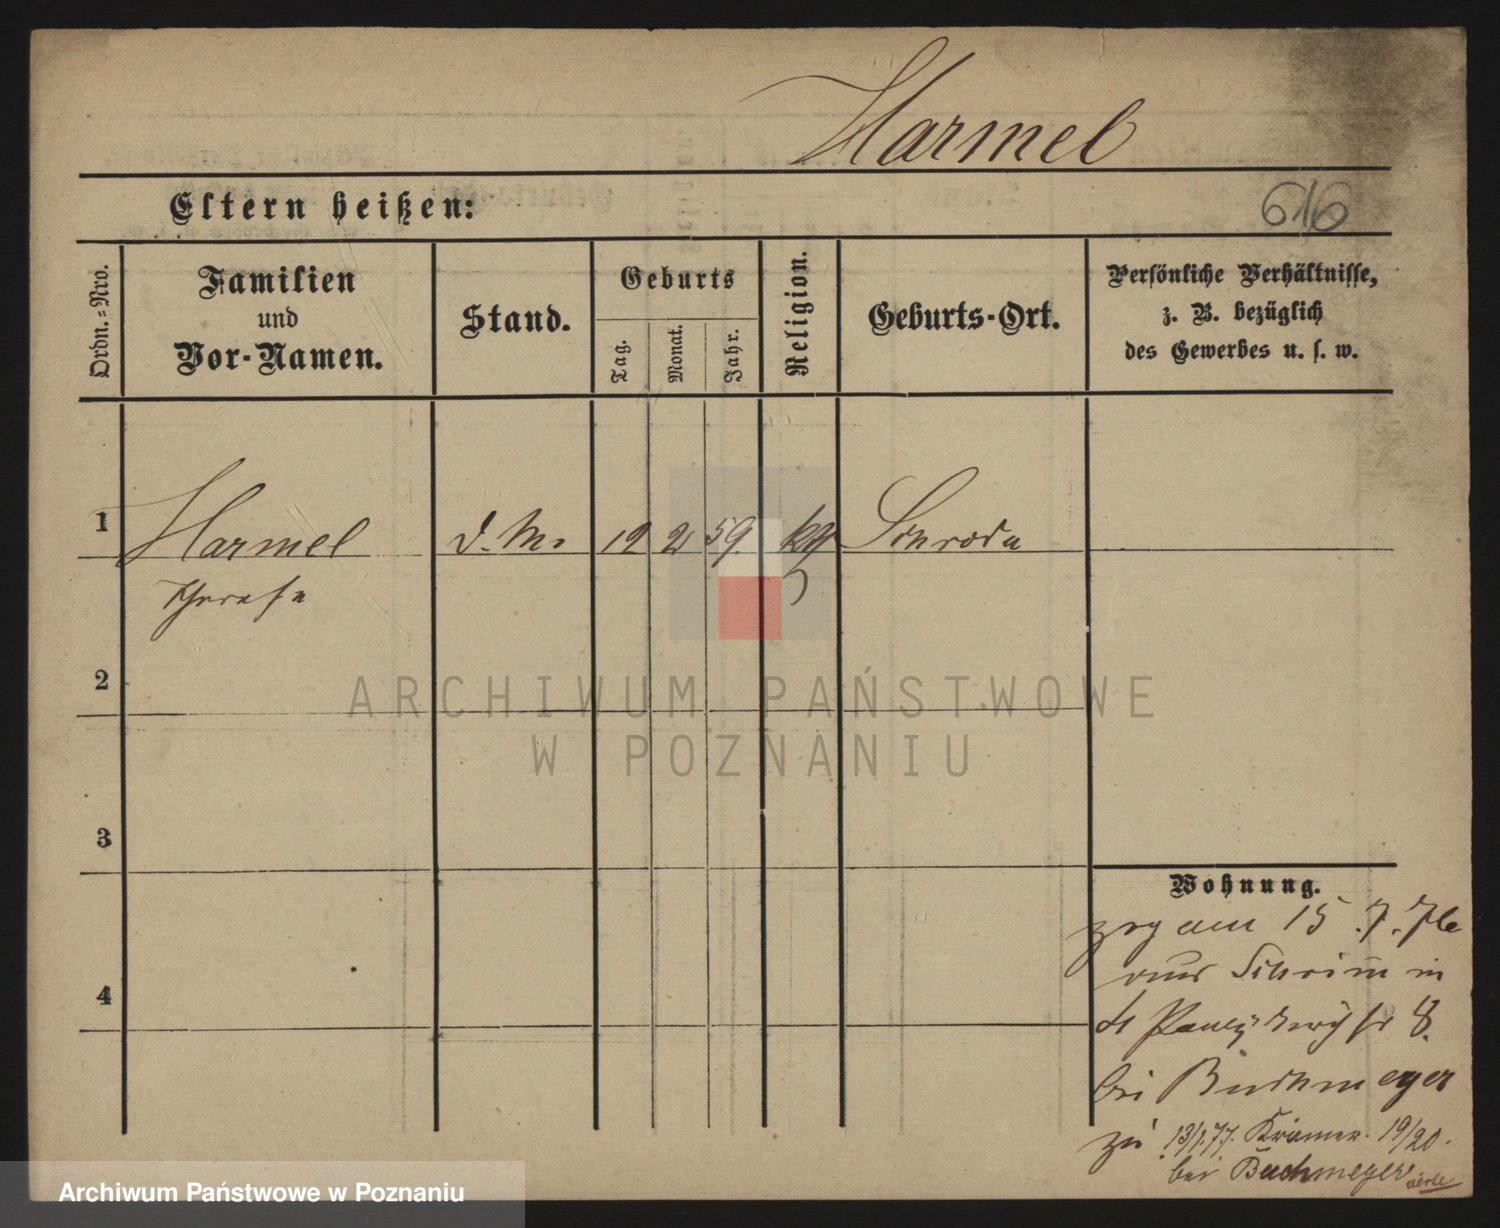 Harmel
Eltern heißen:
616
Ordn.-Nro.
Familien
und
Vor-Namen.
Stand.
Geburts
Tag.
Monat.
Jahr.
Religion.
Geburts-Ort.
Persönliche Verhältnisse,
z. B. bezüglich
des Gewerbes u. s. w.
1
Harmel
d. M.
12
2
59.
kth
Schroda
Therese
2
ARCHIWUM PAŃSTWOWE
W POZNANIU
3
Wohnung.
zog am 15.7.76
aus Schrimm in
4
8.
bei Buchmeyer
zu 13/1.77. Krämer. 19/20.
bei Buchmeyer
Archiwum Państwowe w Poznaniu